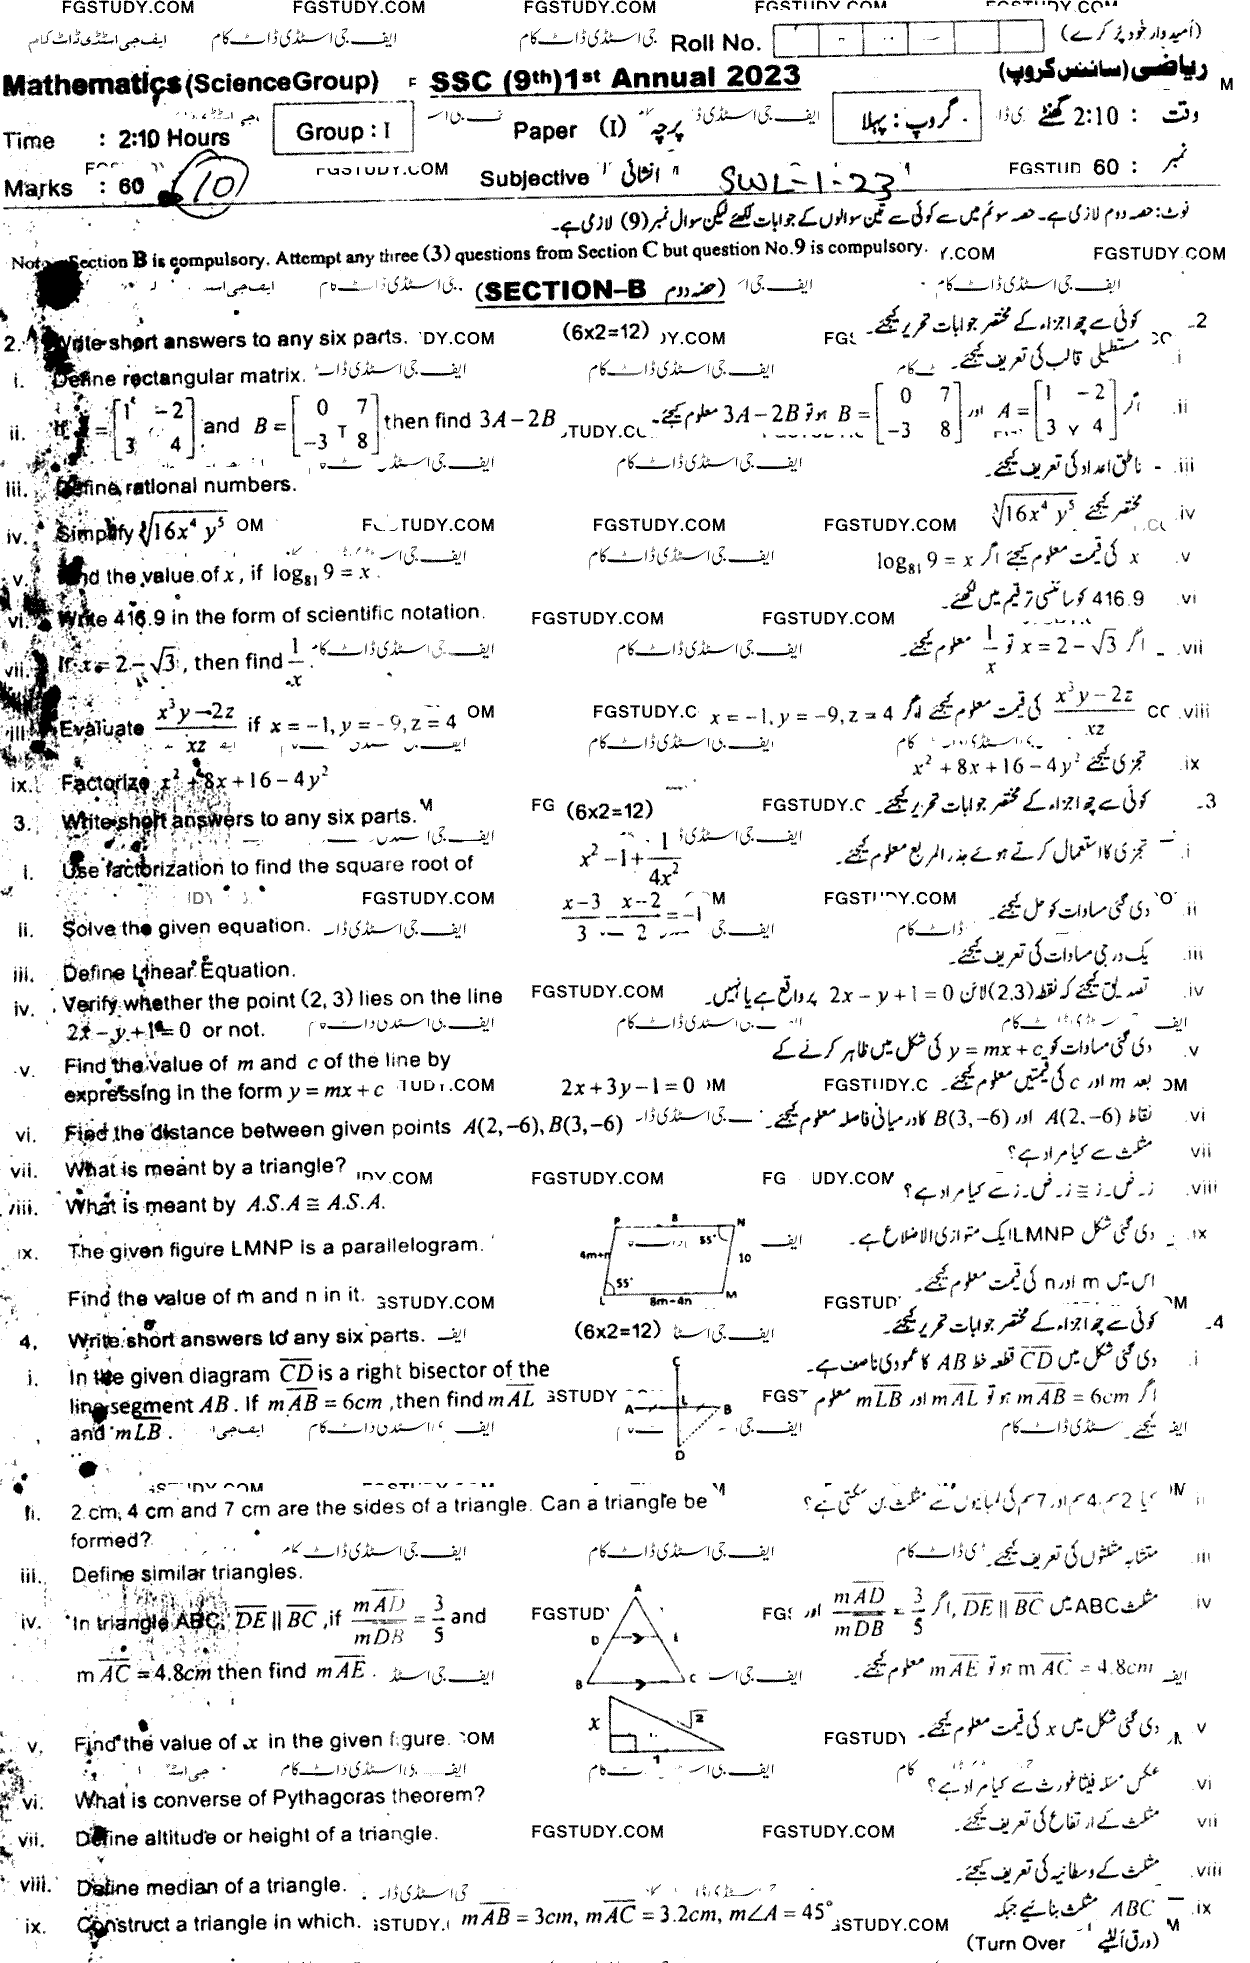 FGSTUDY.COM FGSTUDY.COM FGSTUDY.COM FGSTUDY.COM FGSTUDY.COM
ایف جی اسٹڈی ڈاٹ کام ایف جی اسٹڈی ڈاٹ کام جی اسٹڈی ڈاٹ کام Roll No. (اُمیدوار خود پُر کرے)
Mathematics (ScienceGroup) F SSC (9th) 1st Annual 2023 ریاضی (سائنس گروپ) M
Time : 2:10 Hours Group : I Paper (I) پرچہ ایف جی اسٹڈی گروپ : پہلا وقت : 2:10 گھنٹے
Marks : 60 (10) FGSTUDY.COM Subjective انشائی SWL-1-23 FGSTUD نمبر : 60
نوٹ: حصہ دوم لازمی ہے۔ حصہ سوئم میں سے کوئی سے تین سوالوں کے جوابات لکھئے لیکن سوال نمبر (9) لازمی ہے۔
Note: Section B is compulsory. Attempt any three (3) questions from Section C but question No.9 is compulsory. Y.COM FGSTUDY.COM
(SECTION–B حصہ دوم)
2. Write short answers to any six parts. (6x2=12) 2۔ کوئی سے چھ اجزاء کے مختصر جوابات تحریر کیجئے۔
i. Define rectangular matrix. i. مستطیلی قالب کی تعریف کیجئے۔
ii. If A = [1 -2; 3 4] and B = [0 7; -3 8] then find 3A − 2B ii. اگر A = [1 -2; 3 4] اور B = [0 7; -3 8] ہو تو 3A − 2B معلوم کیجئے۔
iii. Define rational numbers. iii. ناطق اعداد کی تعریف کیجئے۔
iv. Simplify ∛(16x⁴ y⁵) OM FGSTUDY.COM FGSTUDY.COM iv. مختصر کیجئے ∛(16x⁴ y⁵)
v. Find the value of x, if log₈₁ 9 = x. v. x کی قیمت معلوم کیجئے اگر log₈₁ 9 = x
vi. Write 416.9 in the form of scientific notation. FGSTUDY.COM FGSTUDY.COM vi. 416.9 کو سائنسی ترقیم میں لکھئے۔
vii. If x = 2 − √3, then find 1/x. vii. اگر x = 2 − √3 تو 1/x معلوم کیجئے۔
viii. Evaluate (x³y − 2z)/xz if x = −1, y = −9, z = 4 OM FGSTUDY.C viii. (x³y − 2z)/xz کی قیمت معلوم کیجئے اگر x = −1, y = −9, z = 4
ix. Factorize x² + 8x + 16 − 4y² ix. تجزی کیجئے x² + 8x + 16 − 4y²
3. Write short answers to any six parts. (6x2=12) 3۔ کوئی سے چھ اجزاء کے مختصر جوابات تحریر کیجئے۔
i. Use factorization to find the square root of x² − 1 + 1/4x² i. تجزی کا استعمال کرتے ہوئے جذر المربع معلوم کیجئے۔
FGSTUDY.COM
ii. Solve the given equation. (x−3)/3 − (x−2)/2 = −1 ii. دی گئی مساوات کو حل کیجئے۔
iii. Define Linear Equation. iii. یک درجی مساوات کی تعریف کیجئے۔
iv. Verify whether the point (2, 3) lies on the line FGSTUDY.COM iv. تصدیق کیجئے کہ نقطہ (2,3) لائن 2x − y + 1 = 0 پر واقع ہے یا نہیں۔
2x − y + 1 = 0 or not.
v. Find the value of m and c of the line by v. دی گئی مساوات کو y = mx + c کی شکل میں ظاہر کرنے کے
expressing in the form y = mx + c 2x + 3y − 1 = 0 بعد m اور c کی قیمتیں معلوم کیجئے۔
vi. Find the distance between given points A(2,−6), B(3,−6) vi. نقاط A(2,−6) اور B(3,−6) کا درمیانی فاصلہ معلوم کیجئے۔
vii. What is meant by a triangle? FGSTUDY.COM vii. مثلث سے کیا مراد ہے؟
viii. What is meant by A.S.A ≅ A.S.A. viii. ز۔ض۔ز ≅ ز۔ض۔ز سے کیا مراد ہے؟
P 8 N
ix. The given figure LMNP is a parallelogram. 4m+n 55° 10 ix. دی گئی شکل LMNP ایک متوازی الاضلاع ہے۔
Find the value of m and n in it. 55° L 8m-4n M اس میں m اور n کی قیمت معلوم کیجئے۔
4. Write short answers to any six parts. (6x2=12) 4۔ کوئی سے چھ اجزاء کے مختصر جوابات تحریر کیجئے۔
i. In the given diagram CD is a right bisector of the C i. دی گئی شکل میں CD قطعہ خط AB کا عمودی ناصف ہے۔
line segment AB. If mAB = 6cm, then find mAL A L B اگر mAB = 6cm ہو تو mAL اور mLB معلوم
and mLB. D کیجئے
ii. 2 cm, 4 cm and 7 cm are the sides of a triangle. Can a triangle be ii. کیا 2 سم، 4 سم اور 7 سم کی لمبائیوں سے مثلث بن سکتی ہے؟
formed?
iii. Define similar triangles. iii. متشابہ مثلثوں کی تعریف کیجئے۔
iv. In triangle ABC, DE || BC, if mAD/mDB = 3/5 and A D E iv. مثلث ABC میں DE || BC, اگر mAD/mDB = 3/5 اور
mAC = 4.8cm then find mAE. B C mAC = 4.8cm ہو تو mAE معلوم کیجئے۔
v. Find the value of x in the given figure. x √2 1 v. دی گئی شکل میں x کی قیمت معلوم کیجئے۔
vi. What is converse of Pythagoras theorem? vi. عکس مسئلہ فیثاغورث سے کیا مراد ہے؟
vii. Define altitude or height of a triangle. FGSTUDY.COM FGSTUDY.COM vii. مثلث کے ارتفاع کی تعریف کیجئے۔
viii. Define median of a triangle. viii. مثلث کے وسطانیہ کی تعریف کیجئے۔
ix. Construct a triangle in which. mAB = 3cm, mAC = 3.2cm, m∠A = 45° ix. مثلث ABC بنائیے جبکہ
(Turn Over ورق اُلٹیے)